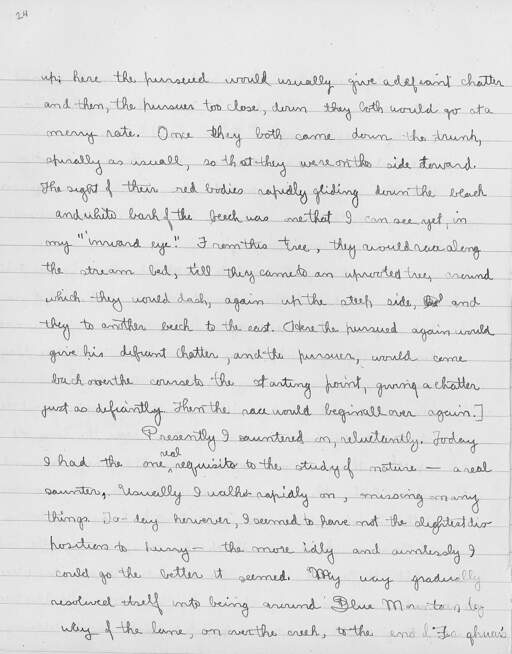 24
up; here the pursued would usually give a defiant chatter
and then, the pursuer too close, down they both would go at a
merry rate. Once they both came down the trunk,
spirally as usuall, so that they were on the side toward.
The sight of their red bodies rapidly gliding down the
and white bark of the beech was one that I can see yet, in
my "inward eye." From this tree, they would race along
the stream bed, till they came to an uprooted tree, around
which they would dash, again up the steep side, and
they to another beech to the east. (Here the pursued again would
give his defiant chatter, and the pursuer, would come
back over the course to the starting point, giving a chatter
just as defiantly. Then the race would begin all over again.]
Presently I sauntered on, reluctantly. Today
I had the one real requisite to the study of nature — a real
saunter. Usually I walk rapidly on, missing many
things. To-day however, I seemed to have not the slightest dis-
position to hurry — the more idly and aimlessly I
could go the better it seemed. My way gradually
resolved itself into being around Blue Mountain by
way of the lane, on over the creek, to the end of